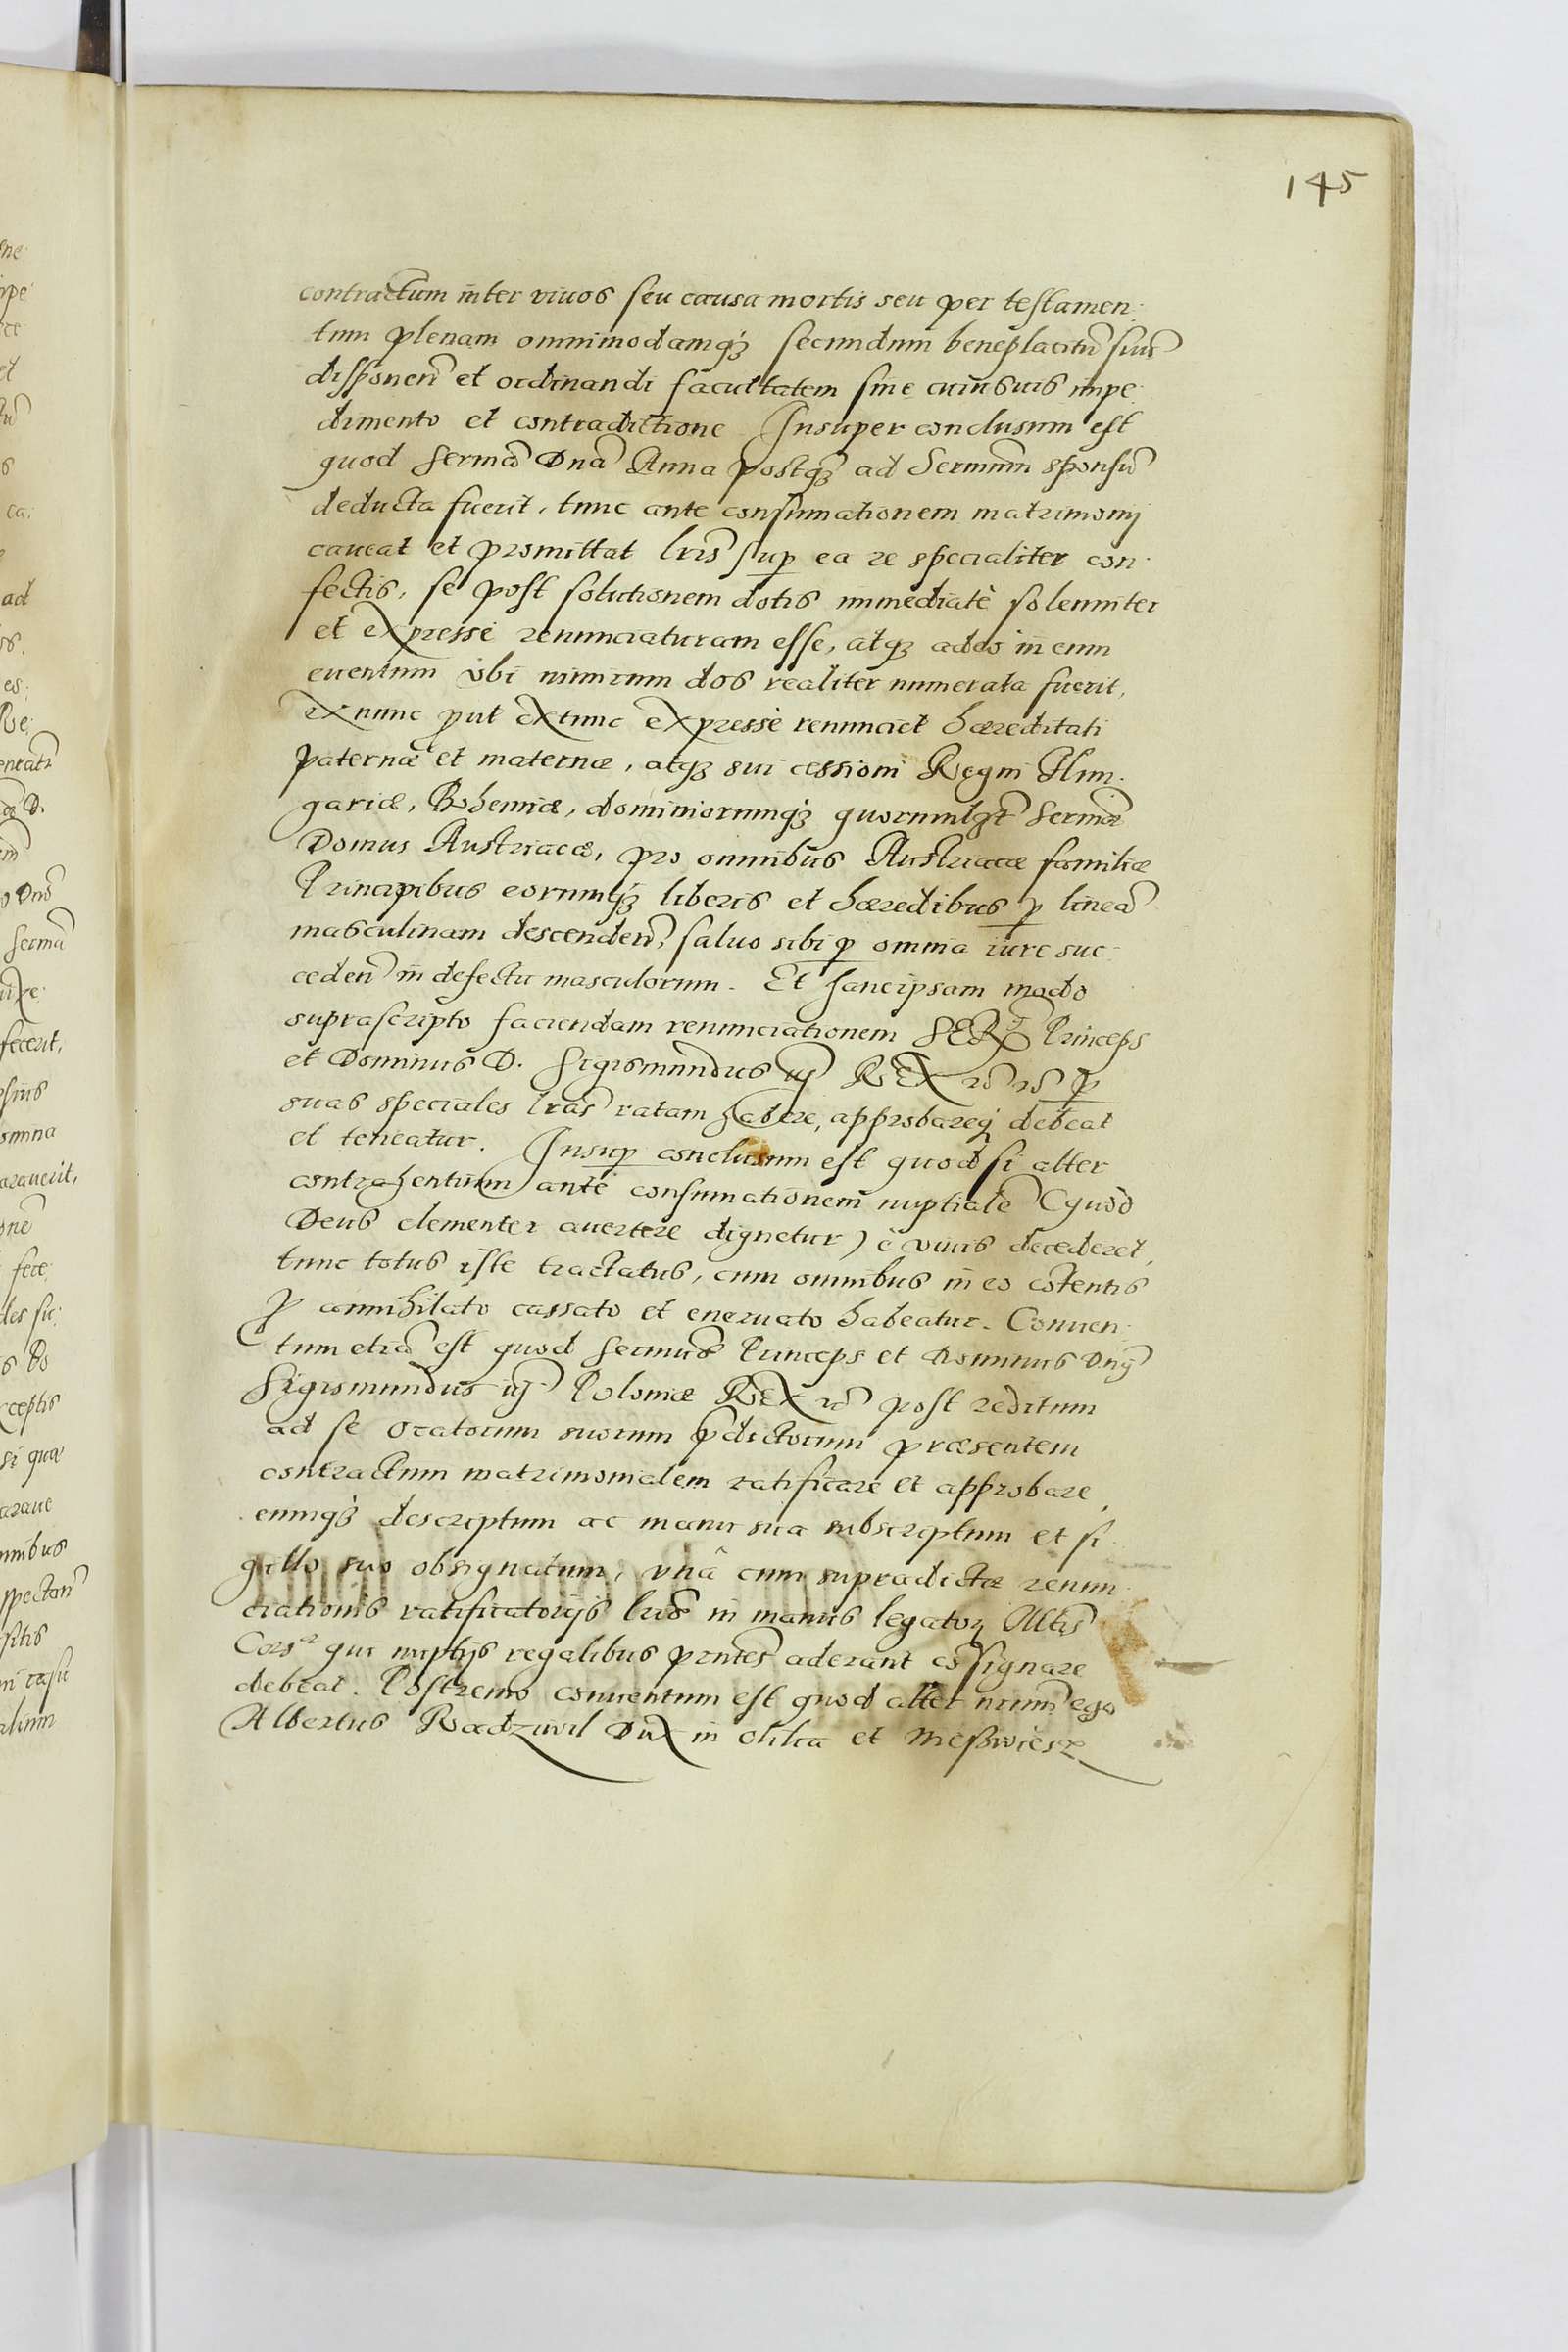 145
contractum inter vivos seu causa mortis seu per testamen:
tum plenam omnimodamqꝫ secundum beneplacitũ suũ
disponen̄ et ordinandi facultatem sine cuiusvis impe:
dimento et contradictione. Insuper conclusum est
quod Serm̄a Dn̄a Anna postqꝫ ad Serm̄um sponsū
deducta fuerit, tunc ante consumationem matrimonij
caveat et promittat lr̄is sup̱ ea re specialiter con:
fectis, se post solutionem dotis immediatè solenniter
et expressè renunciaturam esse, atqꝫ adeo in eum
eventum ubi nimirum dos realiter numerata fuerit,
ex nunc put extunc expressè renunciet hæreditati
paternæ et maternæ, atqꝫ sui cessioni Regni Hun:
gariæ, Bohemiæ, dominiorumqꝫ quorumlꝫt Serm̄æ
Domus Austriacæ, pro omnibus Austriacæ familiæ
Principibus eorumqꝫ liberis et hæredibus ꝑ lineā
masculinam descenden̄, salvo sibi ꝑ omnia iure suc:
ceden̄ in defectu masculorum. Et hanc ipsam modo
suprascripto faciendam renunciationem SER. Princeps
et Dominus D. Sigismundus iij REX ꝛc̄ ꝛc̄ ꝑ
suas speciales lr̄as ratam habere, approbareqꝫ debeat
et teneatur. Insuꝑ conclusum est quod si alter
contrahentium ante consumationem nuptialē (quod
Deus clementer avertere dignetur) è vivis decederet,
tunc totus iste tractatus, cum omnibus in eo cōtentis
ꝓ annihilato cassato et enervato habeatur. Conven:
tum etiā est quod Serm̄us Princeps et Dominus Dn̄s
Sigismundus iij Poloniæ REX ꝛc̄ post reditum
ad se Oratorum suorum p̄dictorum præsentem
contractum matrimonialem ratificare et approbare,
eumqꝫ descriptum ac manu sua subscriptum et si:
gillo suo obsignatum, unâ cum supradictæ renun:
ciationis ratificatorijs lr̄is in manus legatoꝝ Mtis
Cæs qui nuptijs regalibus prn̄tes aderant cōsignare
debeat. Postremo conventum est quod alter nr̄um ego
Albertus Radziwil Dux in Olika et Nießwiesz